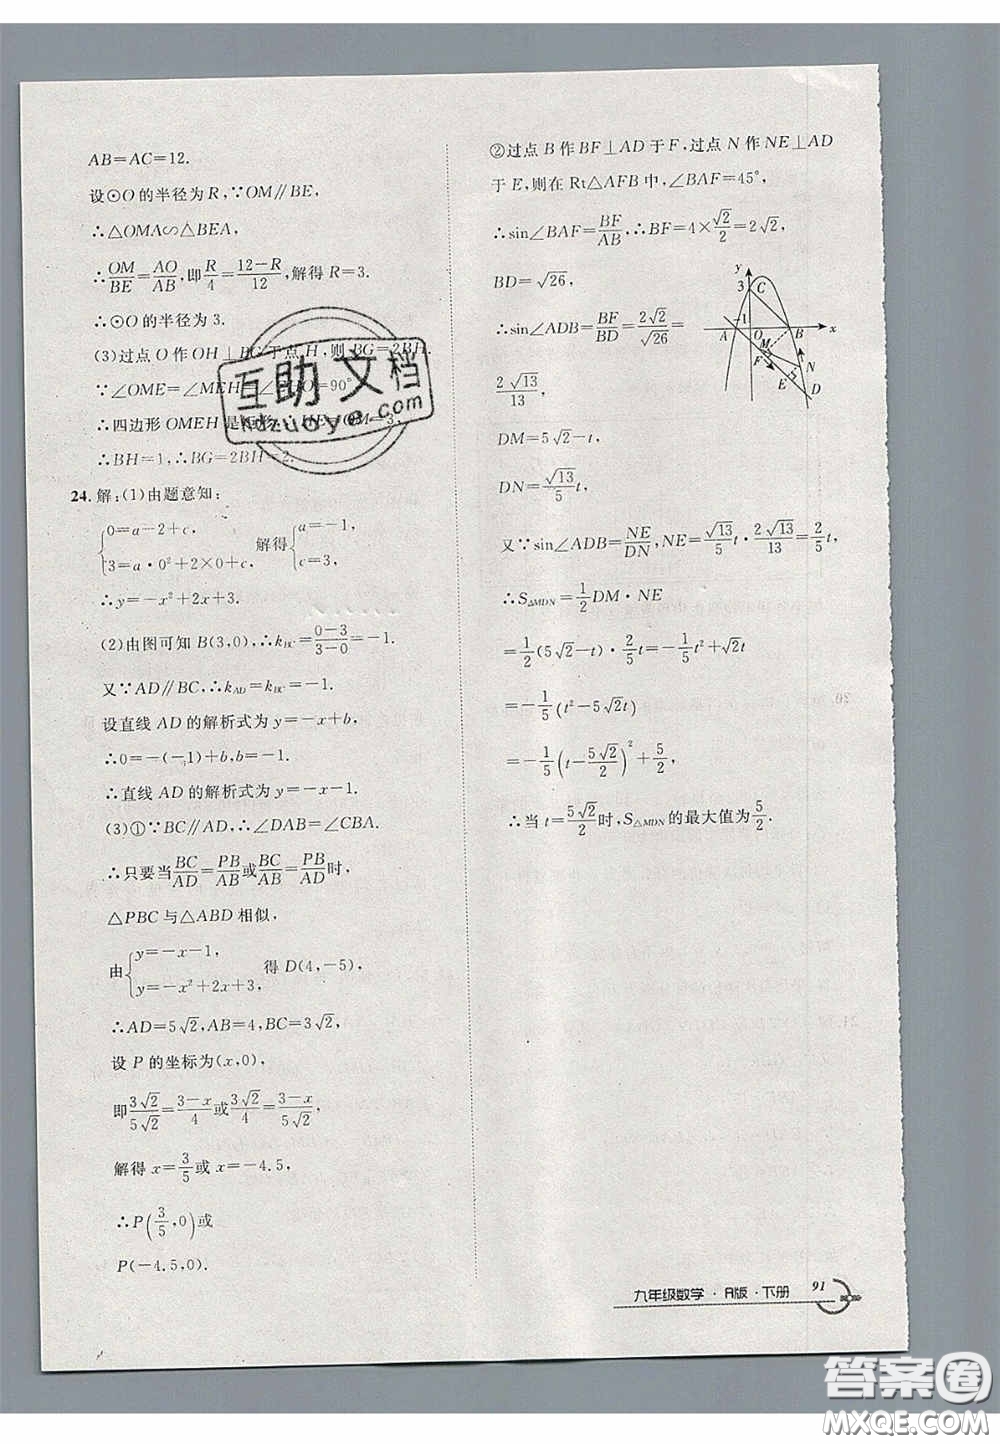 AB=AC=12.
设⊙O的半径为R,∵OM∥BE,
∴△OMA∽△BEA,
∴OM/BE=AO/AB,即R/4=(12-R)/12,解得R=3.
∴⊙O的半径为3.
(3)过点O作OH⊥BG于点H,则BG=2BH.
∵∠OME=∠MEH=∠EHO=90°
∴四边形OMEH是矩形,∴HE=OM=3,
∴BH=1,∴BG=2BH=2.
24.解:(1)由题意知:
{0=a-2+c, 3=a·0²+2×0+c, 解得{a=-1, c=3,
∴y=-x²+2x+3.
(2)由图可知B(3,0),∴k_BC=(0-3)/(3-0)=-1.
又∵AD∥BC,∴k_AD=k_BC=-1.
设直线AD的解析式为y=-x+b,
∴0=-(-1)+b,b=-1.
∴直线AD的解析式为y=-x-1.
(3)①∵BC∥AD,∴∠DAB=∠CBA.
∴只要当BC/AD=PB/AB或BC/AB=PB/AD时,
△PBC与△ABD相似,
由{y=-x-1, y=-x²+2x+3, 得D(4,-5),
∴AD=5√2,AB=4,BC=3√2,
设P的坐标为(x,0),
即3√2/5√2=(3-x)/4或3√2/4=(3-x)/5√2,
解得x=3/5或x=-4.5,
∴P(3/5,0)或
P(-4.5,0).
②过点B作BF⊥AD于F,过点N作NE⊥AD
于E,则在Rt△AFB中,∠BAF=45°,
∴sin∠BAF=BF/AB,∴BF=4×√2/2=2√2,
BD=√26,
∴sin∠ADB=BF/BD=2√2/√26=
2√13/13,
y
3
C
-1
A
O
B
x
M
F
N
E
D
DM=5√2-t,
DN=√13/5 t,
又∵sin∠ADB=NE/DN,NE=√13/5 t·2√13/13=2/5 t,
∴S△MDN=1/2 DM·NE
=1/2(5√2-t)·2/5 t=-1/5 t²+√2t
=-1/5(t²-5√2t)
=-1/5(t-5√2/2)²+5/2,
∴当t=5√2/2时,S△MDN的最大值为5/2.
九年级数学·R版·下册
91
互助文档
hdzuoye.com
答案圈
MXQE.COM